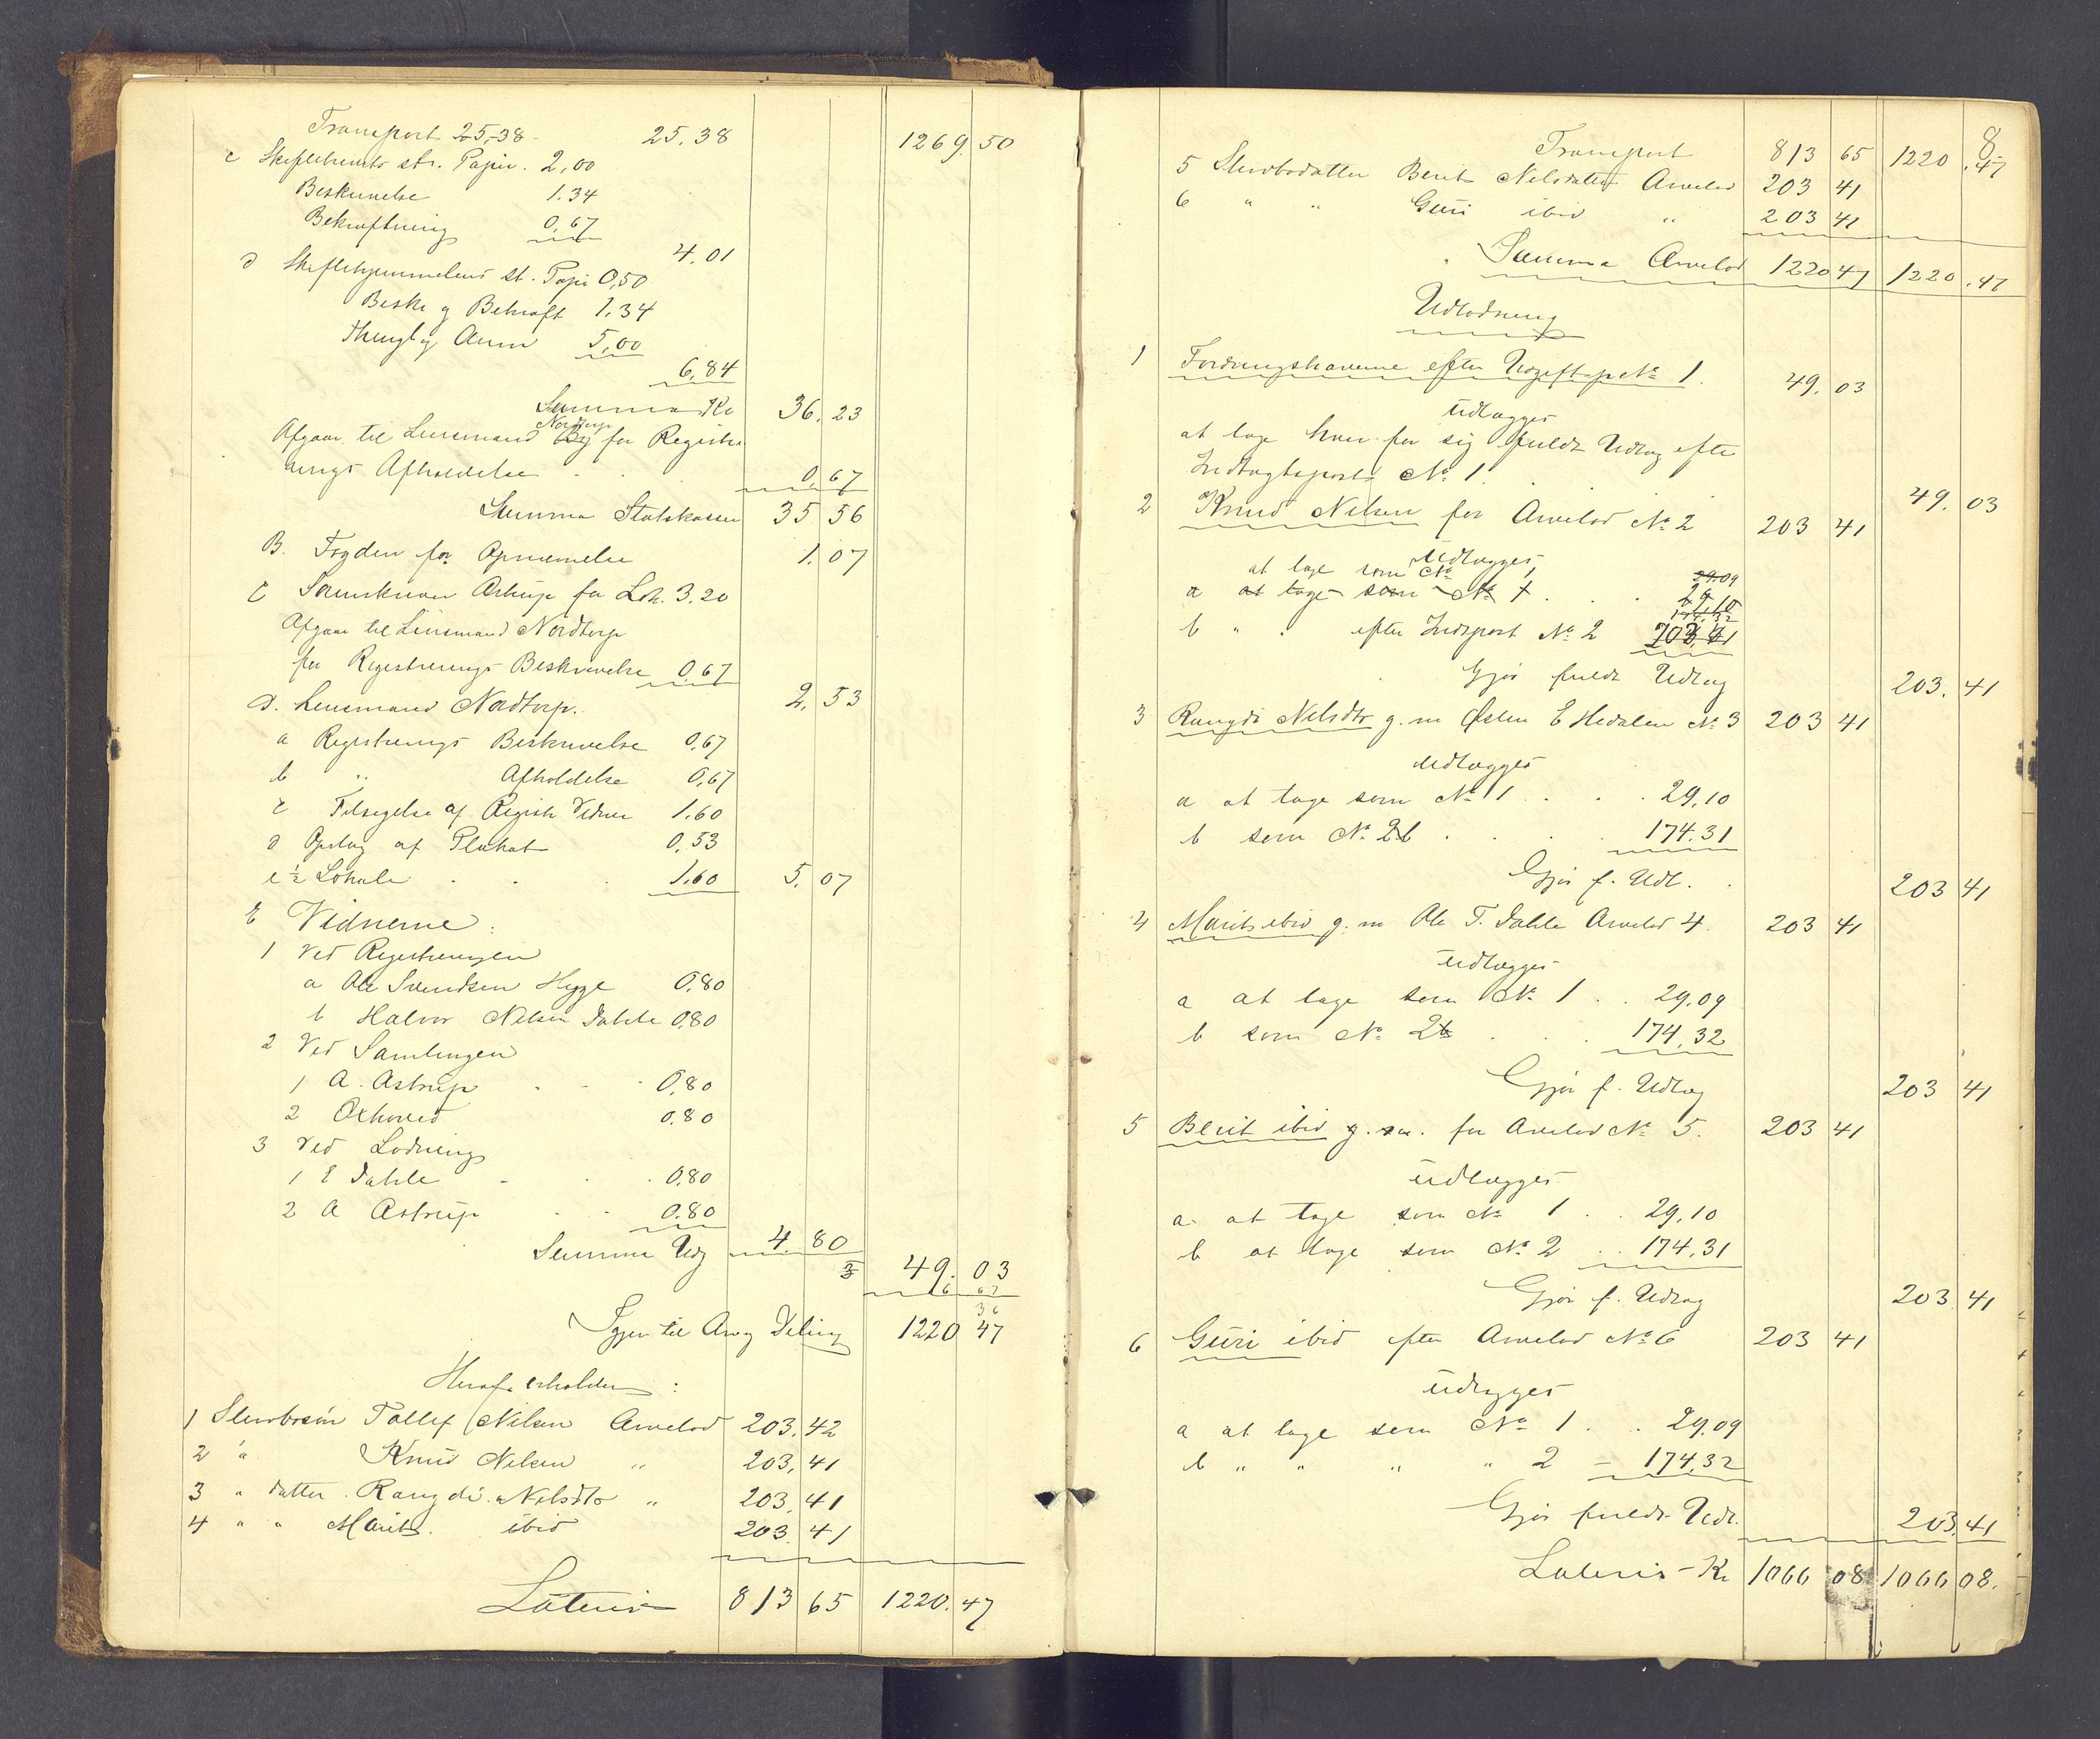 Transport 25,38 25.38 1269.50
c Skiftebrevets st. Papir. 2,00
Beskrivelse 1.34
Bekræftning 0,67
4.01
d Skiftehjemmelens st. Papir 0,50
Beskr og Bekræft 1.34
Thingl og Anm 5,00
6,84
Summa Kr 36.23
Nordtorp
Afgaar til Lensmand By for Registre
rings Afholdelse . . 0,67
Summa Statskassen 35 56
B. Fogden for Opnævnelse 1.07
C Sorenskriver Astrup for Lok. 3.20
Afgaar til Lensmand Nordtorp
for Registrerings Beskrivelse 0,67
2.53
D. Lensmand Nordtorp.
a Registrerings Beskrivelse 0,67
b " Afholdelse 0,67
c Tilsigelse af Registr Vidner 1.60
d Opslag af Plakat 0,53
e ½ Lokale . . . 1.60 5.07
E Vidnerne:
1 Ved Registreringen
a Ole Svendsen Hygge 0.80
b Halvor Nelsen Dahle 0.80
2 Ved Samlingen
1 A. Astrup - - 0,80
2 Oxhoved 0.80
3 Ved Lodning
1 E Dahle - . . 0.80
2 A Astrup . . 0.80
4.80
Summa Udg
49.03
Igjen til Arv og Deling 1220 47
Heraf erholder:
1 Stervbosøn Tollef Nilsen Arvelod 203.42
2 " Knud Nelsen " 203.41
3 " datter Rangdi Nelsdtr " 203.41
4 " " Marit ibid 203.41
Lateris 813 65 1220.47
8
Transport 813 65 1220.47
5 Stervbodatter Berit Nelsdatter Arvelod 203 41
6 " " Guri ibid " 203 41
Summa Arvelod 1220 47 1220.47
Udlodning
1 Fordringshaverne efter Udgiftsp № 1. 49.03
Udlægges
at tage hver for sig fuldt Udlæg efter
Indtægtspost № 1 .
49.03
2 Knud Nelsen for Arvelod № 2 203 41
Udlægges
at tage som № 1 29.09
a at tage som № 1 . . .
b " . efter Indtpost № 2
Gjør fuldt Udlæg 203.41
3 Rangdi Nelsdtr g. m Østen E Hedalen № 3 203 41
Udlægges
a at tage som № 1 . . . 29,10
b som № 2 b . . . 174.31
Gjør f. Udl. . 203 41
4 Marit ibid g. m Ole T. Dahle Arvelod 4. 203 41
Udlægges
a at tage som № 1 . . 29,09
b som № 2b . . . 174,32
Gjør f. Udlæg 203 41
5 Berit ibid g. m. for Arvelod № 5. 203 41
Udlægges
a. at tage som № 1 . . 29,10
b at tage som № 2 . . 174,31
Gjør f. Udlæg 203 41
6 Guri ibid efter Arvelod № 6 203 41
Udlægges
a at tage som № 1 . . 29,09
b " " " " 2 - 174,32
Gjør fuldt Udl. 203.41
Lateris Kr 1066 08 1066 08.